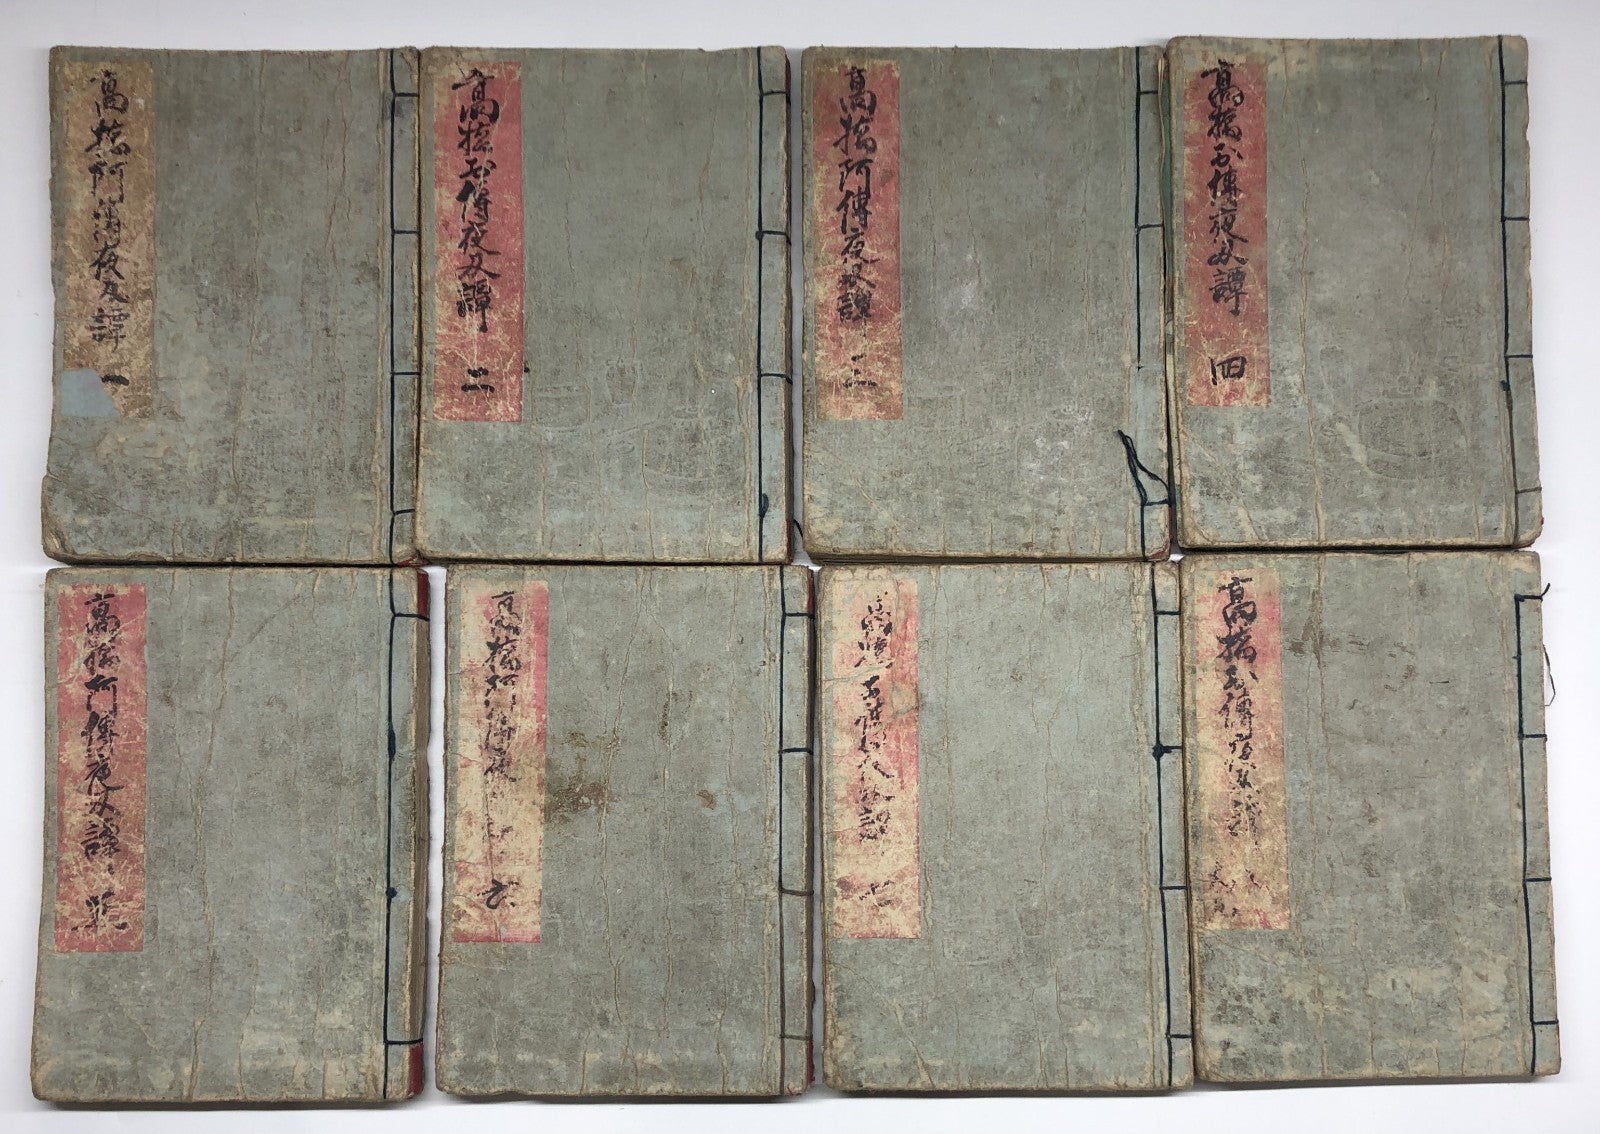 高橋阿傳夜叉譚 一
高橋於傳夜叉譚 二
高橋阿傳夜叉譚 三
高橋於傳夜叉譚 四
高橋阿傳夜叉譚
高橋阿傳夜 六
夜叉譚 七
高橋於傳夜叉譚